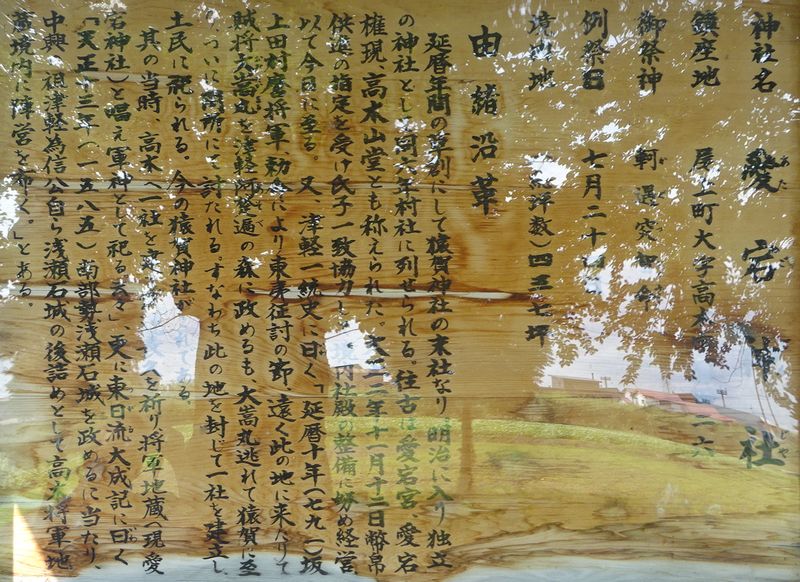 神社名 愛宕神社
鎮座地 尾上町大字高木
御祭神 軻遇突
例祭日 七月二十四
境内地 四三七坪
由緒沿革
延暦年間の草創にして猿賀神社の末社なり。明治に入り独立
の神社として同六年村社に列せられる。往古は愛宕宮、愛宕
権現、高木山堂とも称えられた。大正二年十一月十二日幣帛
供進の指定を受け氏子一致協力し、社殿の整備に努め経営
以て今日に至る。又、津軽一統史に曰く「延暦十年(七九一)坂
上田村麿将軍勅命により東夷征討の節、遠く此の地に来たりて
賊将大嵩丸を津軽阿闍遍の森に攻めるも、大嵩丸逃れて猿賀に至
り、ついに討たれる。すなわち此の地を封じて一社を建立し
土民に祀られる。今の猿賀神社が
其の当時、高木へ一社を を祈り将軍地蔵へ現愛
宕神社)と唱え軍神として祀る云々」更に東日流大成記に曰く
「天正十三年(一五八五)南部勢浅瀬石城を攻めるに当たり、
中興ノ祖津軽為信公自ら浅瀬石城の後詰めとして高木将軍地
蔵境内に陣営を布く。」とある。